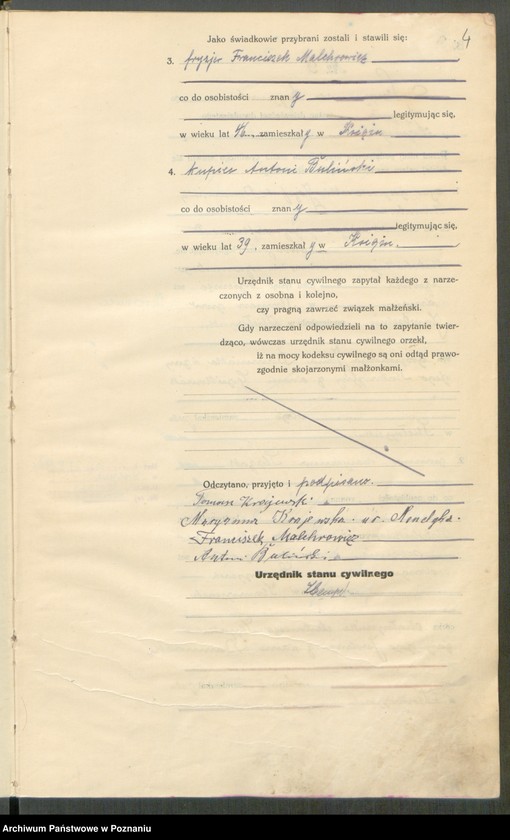 4
Jako świadkowie przybrani zostali i stawili się:
3. fryzjer Franciszek Malchrowicz
co do osobistości znany
legitymując się,
w wieku lat zamieszkały w Książu
4. kupiec Antoni Buliński
co do osobistości znany
legitymując się,
w wieku lat 39, zamieszkały w Książu.
Urzędnik stanu cywilnego zapytał każdego z narze-
czonych z osobna i kolejno,
czy pragną zawrzeć związek małżeński.
Gdy narzeczeni odpowiedzieli na to zapytanie twier-
dząco, wówczas urzędnik stanu cywilnego orzekł,
iż na mocy kodeksu cywilnego są oni odtąd prawo-
zgodnie skojarzonymi małżonkami.
Odczytano, przyjęto i podpisano.
Roman Krajewski
Maryanna Krajewska ur.
Franciszek Malchrowicz
Antoni Buliński
Urzędnik stanu cywilnego
Archiwum Państwowe w Poznaniu